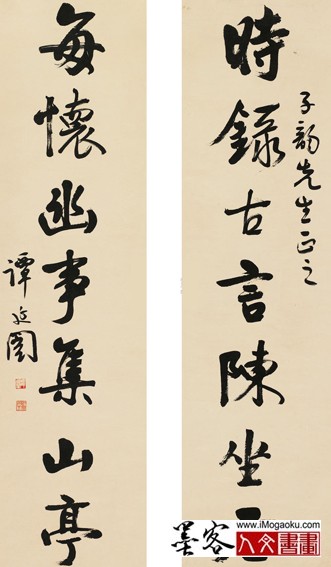 時錄古言陳坐
子韵先生正之
每懷幽事集山亭
譚延闓
墨客
www.iMogaoku.com
人文書畫